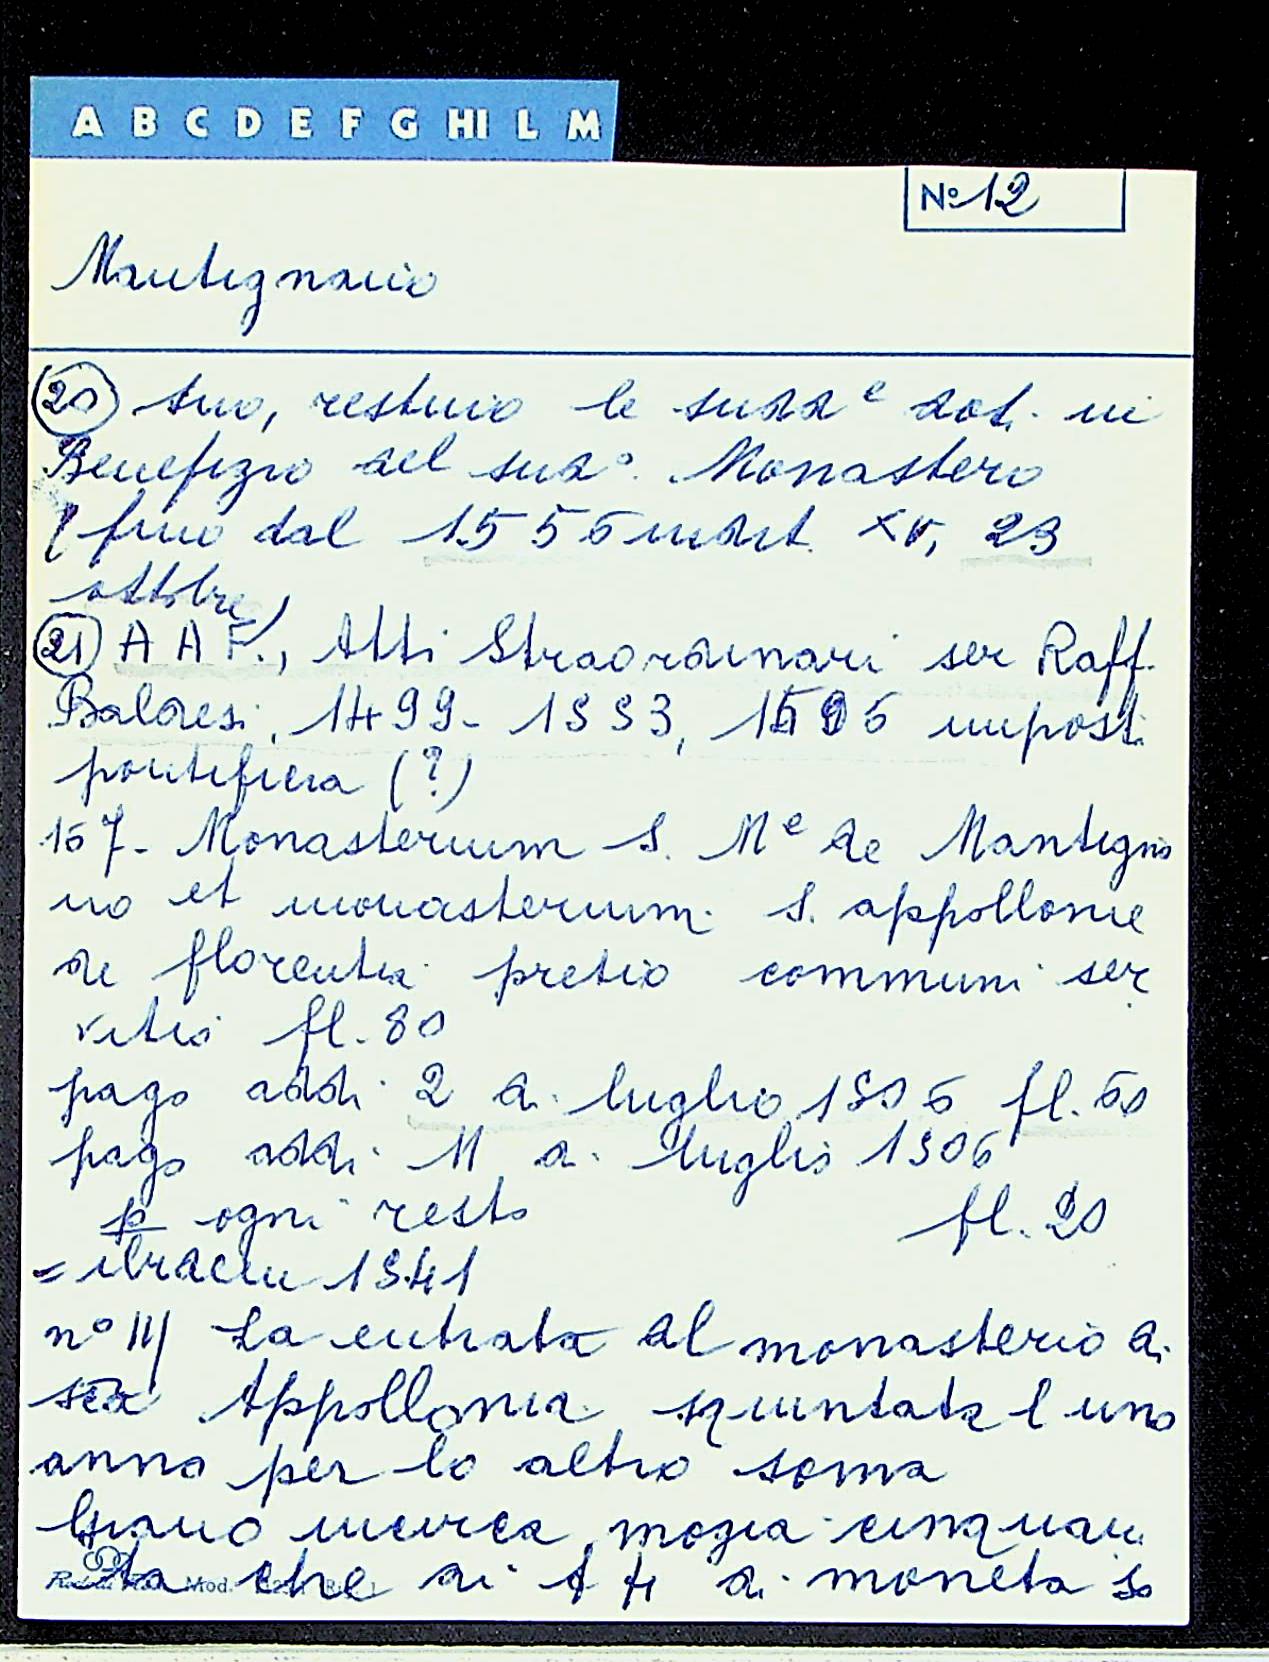 A B C D E F G HI L M
No 12
Mantignano
(20) suo, restituio le sudd e dot. in
Benefizio del sud o. Monastero
fino dal 1556 indit. XV, 23
ottobre)
(21) A A F., Atti Straordinari ser Raff.
Baldesi, 1499-1533, 1506 imposti
pontificia (?)
167- Monasterium S. M e de Mantigna
no et monasterium. S. appollonie
de florentia pretio communi ser
vitio fl. 80
pago addi 2 di luglio 1506 fl. 60
pago addi 11 di luglio 1506
p ogni resto fl. 20
= 1541
no III La entrata del monasterio di
sta Appollonia l uno
anno per lo altro soma
Grano mogia cinquan
ta che di £ 4 di moneta so
Mod.